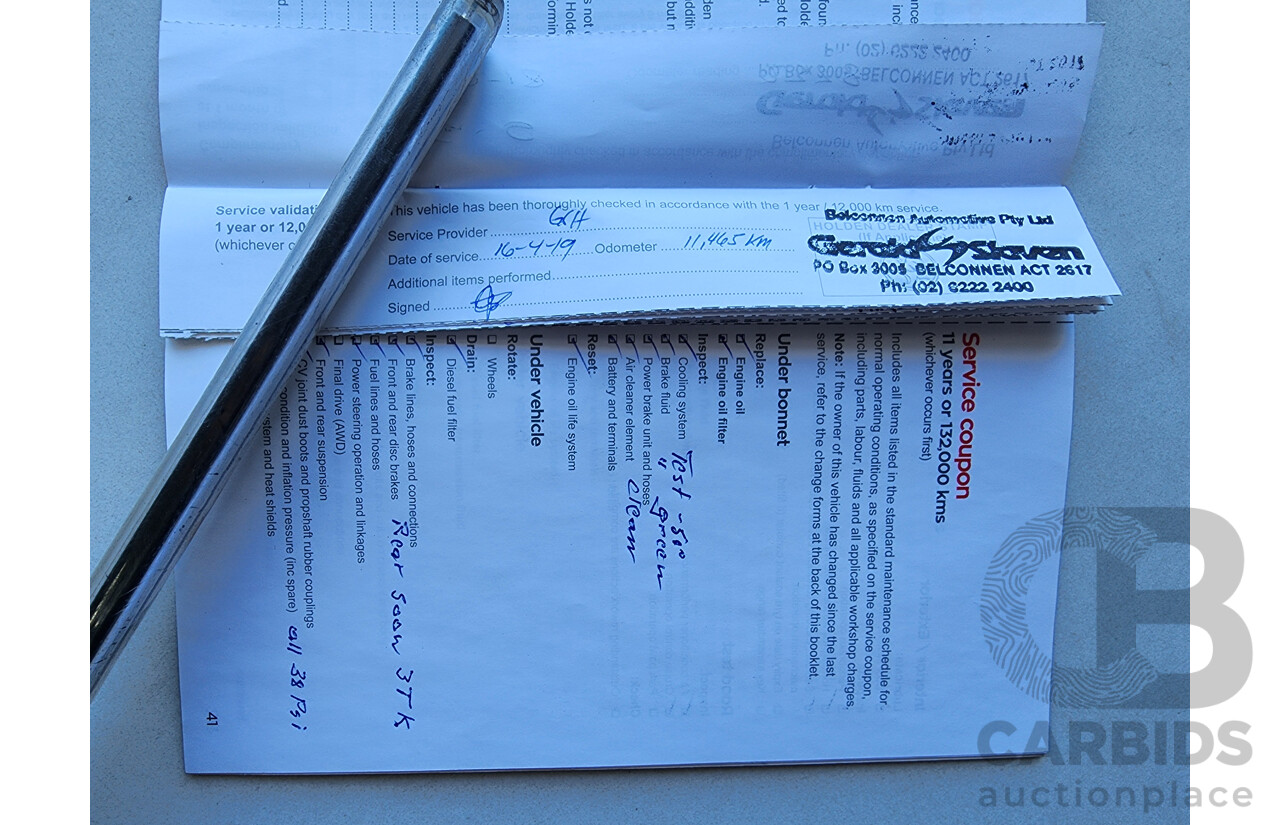 Ph: (02) 6222 2400
PO Box 3005 BELCONNEN ACT 2617
Gerald Slaven
Belconnen Automotive Pty Ltd
Service validat
1 year or 12,0
(whichever
This vehicle has been thoroughly checked in accordance with the 1 year / 12,000 km service.
Service Provider
Date of service 16-4-19 Odometer 11,465 km
Additional items performed
Signed
Belconnen Automotive Pty Ltd
HOLDEN DEALER
Gerald Slaven
PO Box 3005 BELCONNEN ACT 2617
Ph: (02) 6222 2400
Service coupon
11 years or 132,000 kms
(whichever occurs first)
Includes all items listed in the standard maintenance schedule for
normal operating conditions, as specified on the service coupon,
including parts, labour, fluids and all applicable workshop charges.
Note: If the owner of this vehicle has changed since the last
service, refer to the change forms at the back of this booklet.
Under bonnet
Replace:
Engine oil
Engine oil filter
Inspect:
Cooling system Test -50°
Brake fluid " green
Power brake unit and hoses
Air cleaner element clean
Battery and terminals
Reset:
Engine oil life system
Under vehicle
Rotate:
Wheels
Drain:
Diesel fuel filter
Inspect:
Brake lines, hoses and connections
Front and rear disc brakes Rear soon 3TK
Fuel lines and hoses
Power steering operation and linkages
Final drive (AWD)
Front and rear suspension
CV joint dust boots and propshaft rubber couplings
condition and inflation pressure (inc spare) all 38 Psi
stem and heat shields
41
CB
CARBIDS
auctionplace